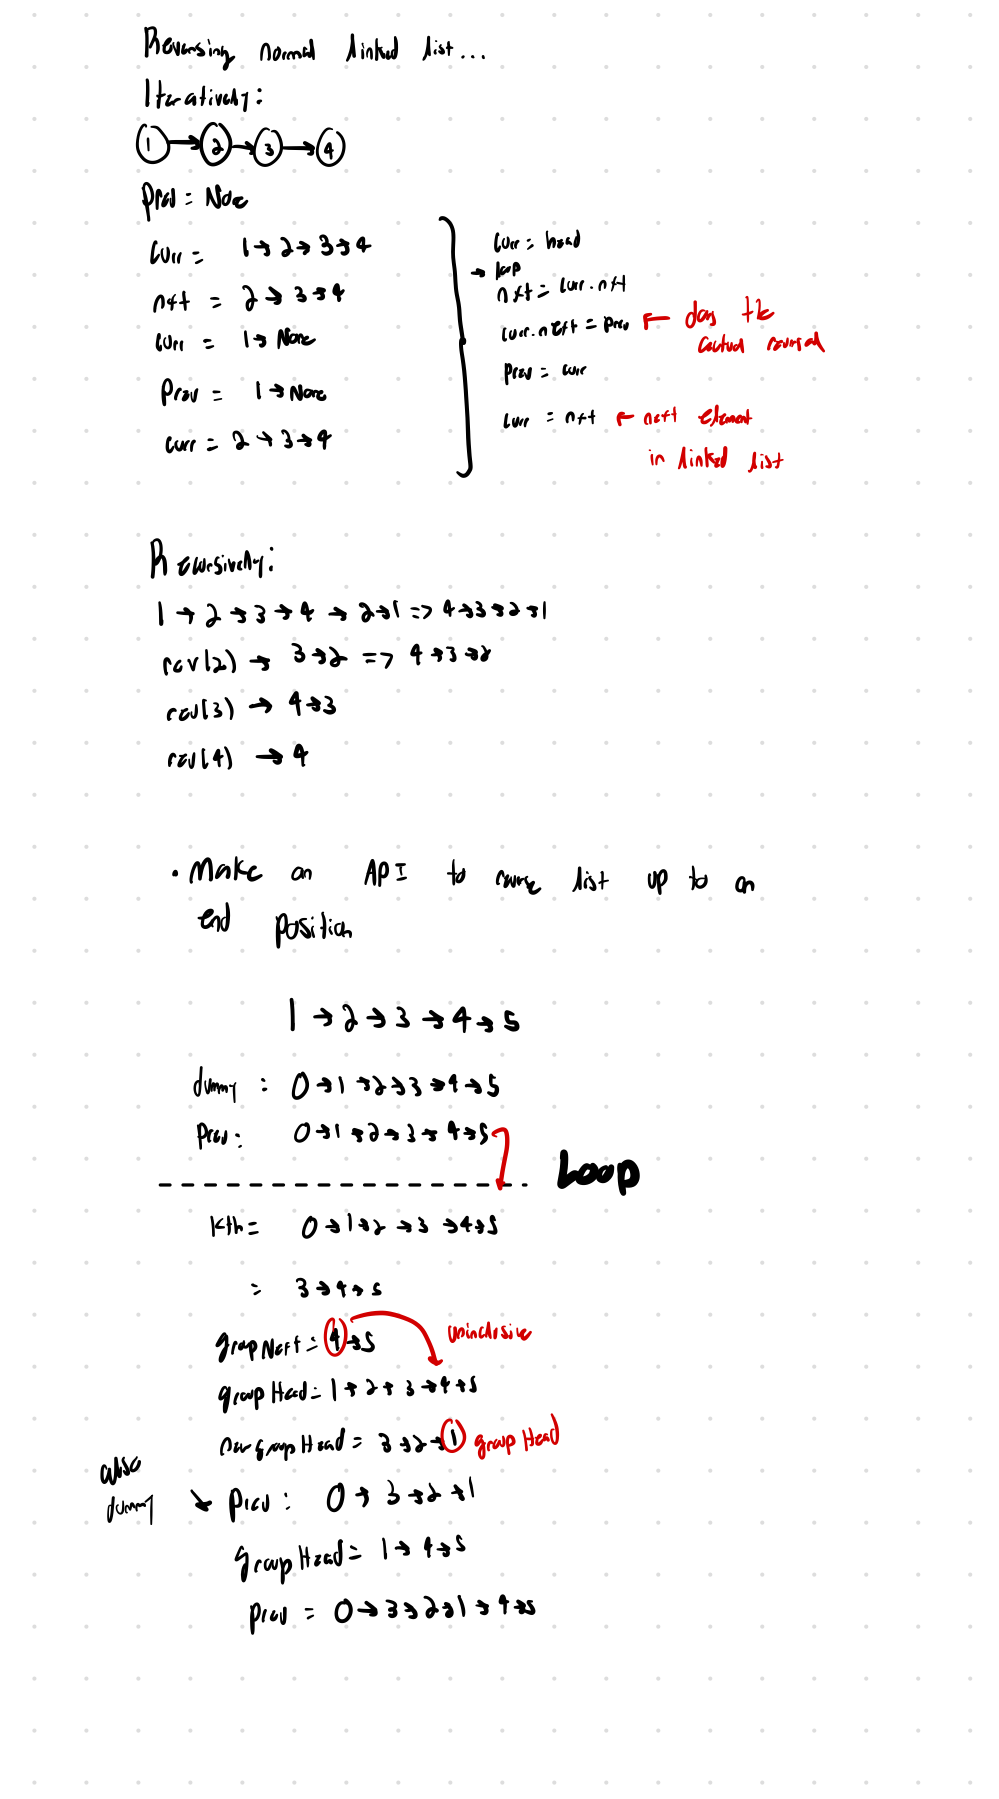 Reversing normal linked list...
Iteratively:
1 → 2 → 3 → 4
prev = None
curr = 1 → 2 → 3 → 4
nxt = 2 → 3 → 4
curr = 1 → None
prev = 1 → None
curr = 2 → 3 → 4
curr = head
→ loop
nxt = curr.nxt
curr.next = prev ← does the
actual reversal
prev = curr
curr = nxt ← next element
in linked list
Recursively:
1 → 2 → 3 → 4 → 2 → 1 => 4 → 3 → 2 → 1
rev(2) → 3 → 2 => 4 → 3 → 2
rev(3) → 4 → 3
rev(4) → 4
• Make an API to reverse list up to an
end position
1 → 2 → 3 → 4 → 5
dummy : 0 → 1 → 2 → 3 → 4 → 5
prev: 0 → 1 → 2 → 3 → 4 → 5
Loop
kth = 0 → 1 → 2 → 3 → 4 → 5
= 3 → 4 → 5
groupNext = 4 → 5 uninclusive
groupHead = 1 → 2 → 3 → 4 → 5
revgroupHead = 3 → 2 → 1 groupHead
also
dummy → prev : 0 → 3 → 2 → 1
groupHead = 1 → 4 → 5
prev = 0 → 3 → 2 → 1 → 4 → 5